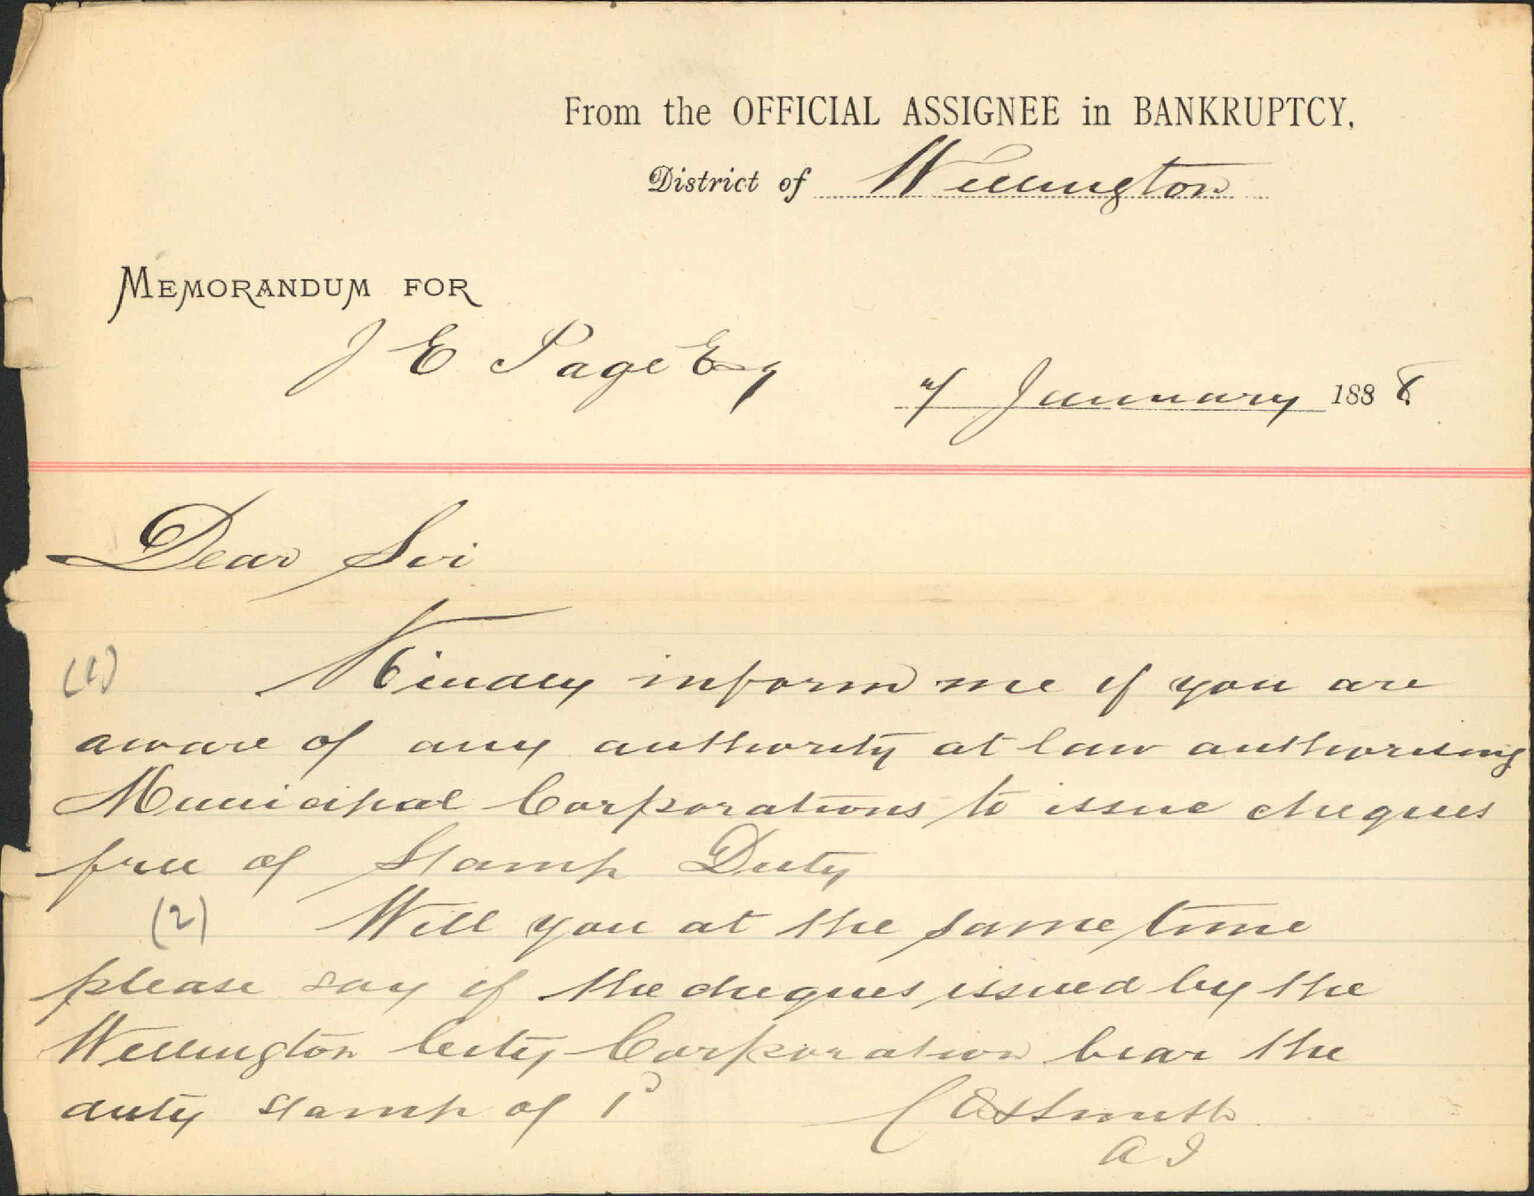 From the OFFICIAL ASSIGNEE in BANKRUPTCY,
District of Wellington
MEMORANDUM FOR
J E Page Esq
7 January 1888.
Dear Sir
(1) Kindly inform me if you are
aware of any authority at law authorising
Municipal Corporations to issue cheques
free of Stamp Duty
(2) Will you at the same time
please say if the cheques issued by the
Wellington City Corporation bear the
duty stamp of 1d
Smith